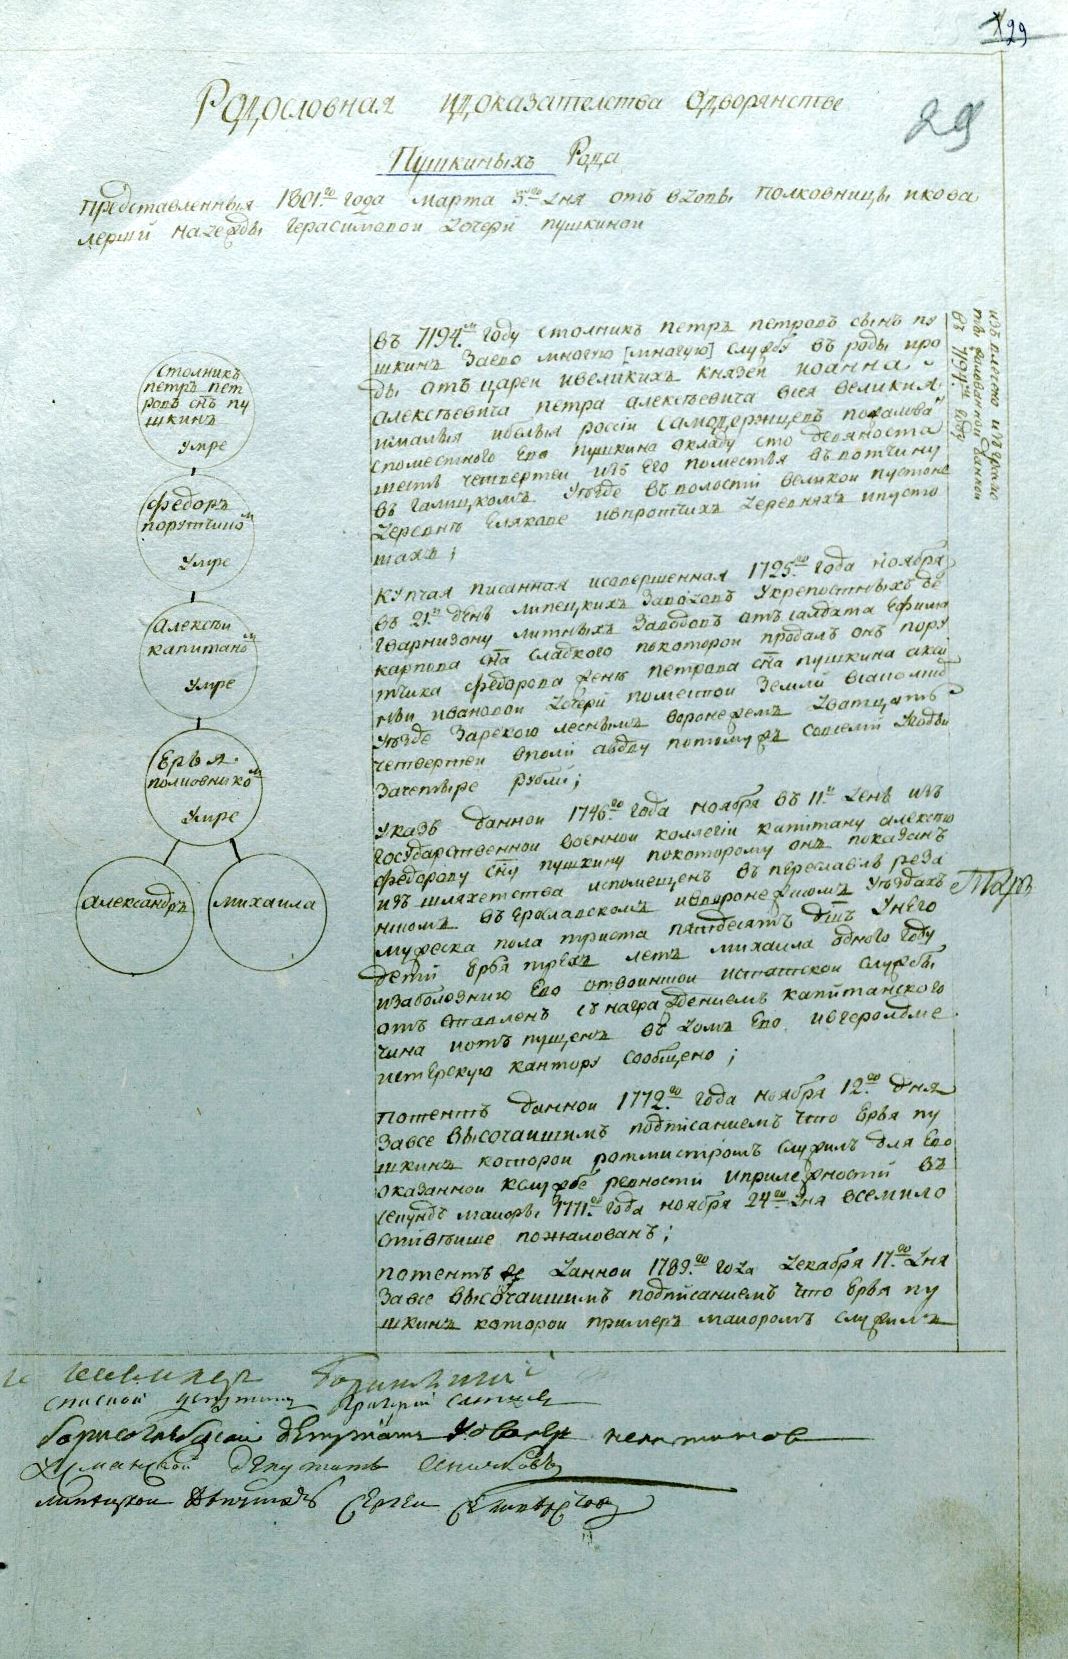 29
29
Родословная идоказателства одворянстве
Пушкиныхъ Рода
представленныя 1801.го года марта 5.го дня отъ вдовы полковницы икова
лерши надежды Герасимовой дочери пушкиной
Столникъ
петръ пет
ровъ снъ пу
шкинъ
умре
Федоръ
порутчико
м
умре
Алексѣи
капитано
м
умре
Ерья
полковнико
м
умре
Александръ
михаила
въ 7194.м году столникъ петръ петровъ сынъ пу
шкинъ заево многую [многую] службу въ роды иро
ды отъ цареи ивеликихъ князей иоанна
алексѣевича петра алексѣевича всея великия
ималыя ибелыя россіи самодержцевъ пожалова
споместного Ево пушкина окладу сто девяноста
шеть четвертеи изъ Его поместья въ вотчину
въ галицкомъ уѣзде въ волости великои пустоне
деревню ивпротчихъ деревняхъ ипусто
шахъ;
изъ
въ 7194.м году
купчая писанная исовершенная 1725.го года ноября
въ 21.й день липецкихъ заводовъ укрепостныхъ де
гварнизону заводовъ отъ салдата Ефима
карпова сна сладкого покоторой продалъ онъ пору
тчика федорова жене петрова сна пушкина
ивановой дочери поместной земли
уѣзде зарекою леснымъ воронежемъ дватцать
четвертеи вполи авдву потомужъ совсеми угодьи
зачетыре рубли;
указъ данной 1746.го года ноября въ 11.й день изъ
государственной военной коллегіи капитану алексѣю
федорову сну пушкину покоторому онъ показанъ
изъ шляхетства испомещенъ въ переславлѣ реза
нскомъ въ Ерославскомъ ивворонежскомъ уѣздахъ
мужеска пола триста пятдесятъ дшъ у него
дети Ерья трехъ летъ михаила одного году
изаболезнию Ево отвоинской истатской службы
отъ ставленъ снаграждениемъ капитанского
чина иотъ пущенъ въ домъ Ево. ивгеролдме
истерскую кантору сообщено;
потентъ данной 1772.го года ноября 12.го дня
завсе высочаишимъ подписаниемъ что Ерья пу
шкинъ которой ротмистромъ служилъ для Ево
оказанной кслужбе ревности иприлежности въ
секундъ маиоры 1771.го года ноября 24.го дня всемило
стивѣише пожалованъ;
потентъ данной 1789.го года декабря 17.го дня
завсе высочаишимъ подписаниемъ что Ерья пу
шкинъ которой примеръ маиоромъ служилъ
депутатъ Григорей
депутатъ
депутатъ
липецкой депутатъ Сергеи